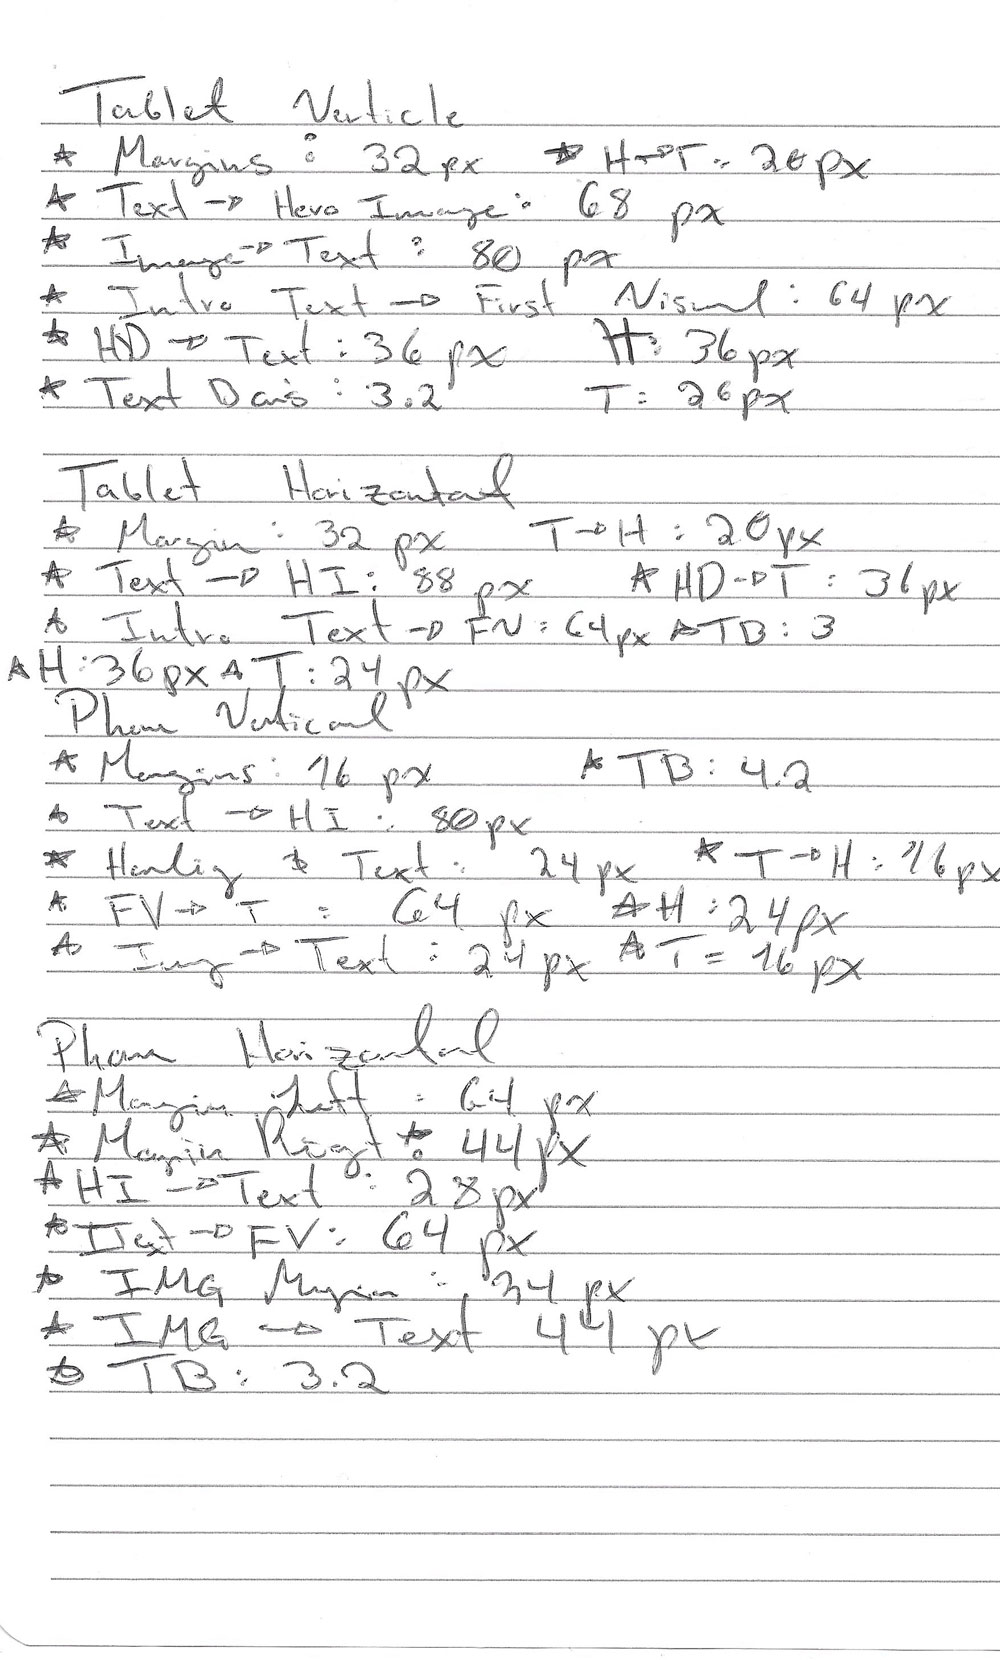 Tablet Verticle
* Margins : 32 px * H→T: 20px
* Text → Hero Image: 68 px
* Image→Text : 80 px
* Intro Text → First Visual : 64 px
* HD → Text : 36 px H: 36px
* Text : 3.2 T: 26px
Tablet Horizontal
* Margin : 32 px T→H : 20px
* Text → HI: 88 px * HD→T : 36px
* Intro Text → FV: 64px * TB: 3
* H: 36px * T: 24px
Phone Vertical
* Margins: 16 px * TB: 4.2
* Text → HI : 80px
* Text: 24px * T→H: 16px
* FV→ T : 64 px * H: 24px
* Img→ Text : 24px * T= 16px
Phone Horizontal
* Margin Left : 64 px
* Margin Rigt : 44px
* HI → Text : 28px
* IText → FV: 64 px
* IMG Margin : 34 px
* IMG → Text 44 px
* TB: 3.2